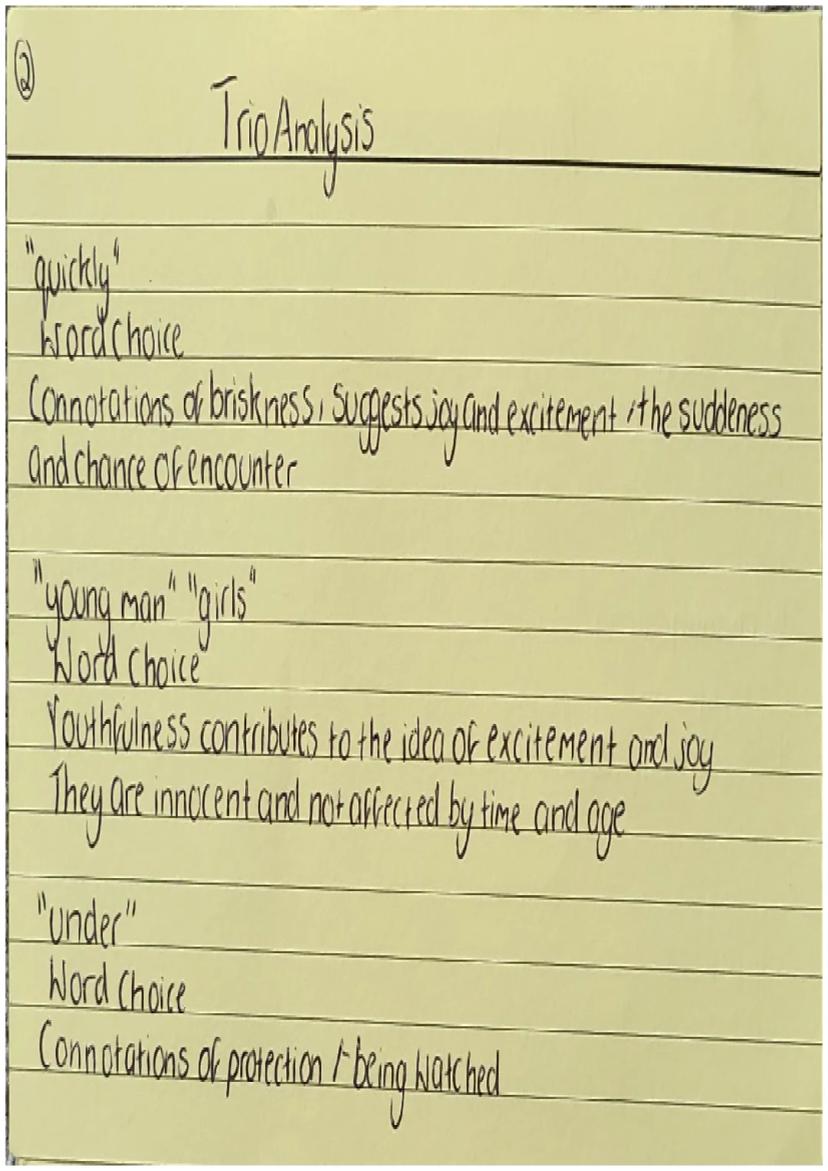 ②
Trio Analysis
"quickly"
Word Choice
Connotations of briskness, suggests joy and excitement / the suddeness
and chance of encounter
"young man" "girls"
Word Choice
Youthfulness contributes to the idea of excitement and joy
They are innocent and not affected by time and age
"under"
Word Choice
Connotations of protection / being watched